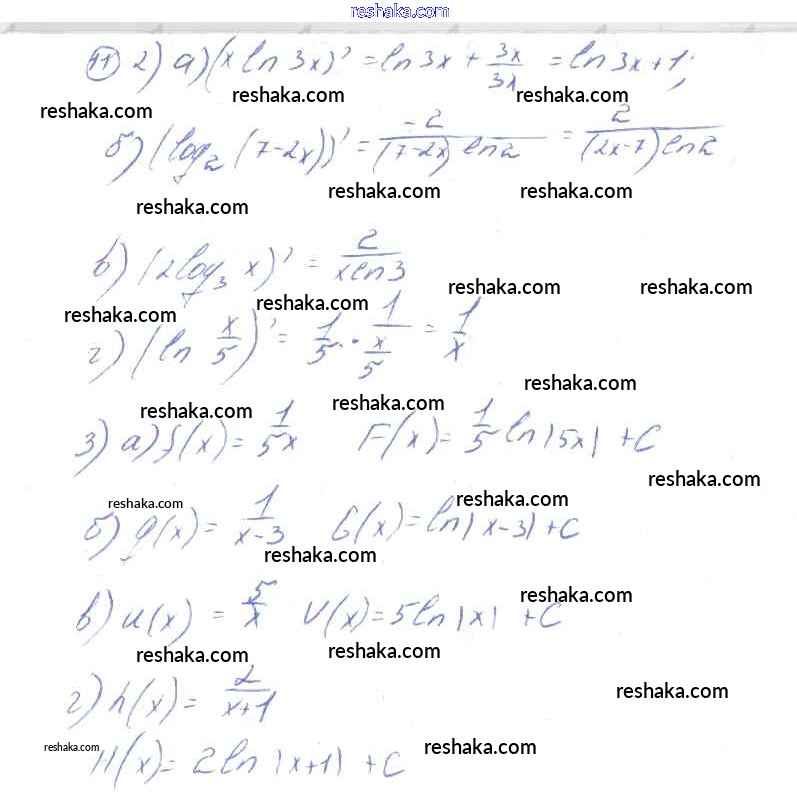 reshaka.com
11) 2) а) (x ln 3x)' = ln 3x + 3x/3x = ln 3x + 1;
reshaka.com reshaka.com reshaka.com
б) (log₂ (7-2x))' = -2/((7-2x) ln 2) = 2/((2x-7) ln 2)
reshaka.com reshaka.com reshaka.com
в) (2 log₃ x)' = 2/(x ln 3)
reshaka.com reshaka.com reshaka.com reshaka.com
г) (ln x/5)' = 1/5 · 1/(x/5) = 1/x
reshaka.com reshaka.com reshaka.com
3) а) f(x) = 1/5x F(x) = 1/5 ln |5x| + C
reshaka.com
reshaka.com reshaka.com
б) g(x) = 1/(x-3) G(x) = ln |x-3| + C
reshaka.com reshaka.com
в) u(x) = 5/x V(x) = 5 ln |x| + C
reshaka.com reshaka.com
г) h(x) = 2/(x+1)
reshaka.com
H(x) = 2 ln |x+1| + C
reshaka.com reshaka.com